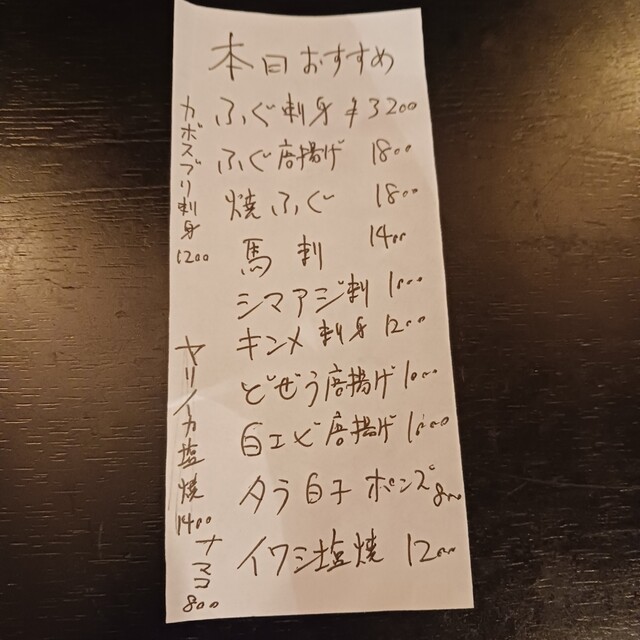 本日おすすめ
ふぐ刺身 ¥3200
ふぐ唐揚げ 1800
焼ふぐ 1800
馬刺 1400
シマアジ刺 1000
キンメ刺身 1200
どぜう唐揚げ 1000
白エビ唐揚げ 1000
タラ白子ポンズ 800
イワシ塩焼 1200
カボスブリ刺身 1200
ヤリイカ塩焼 1400
ナマコ 800